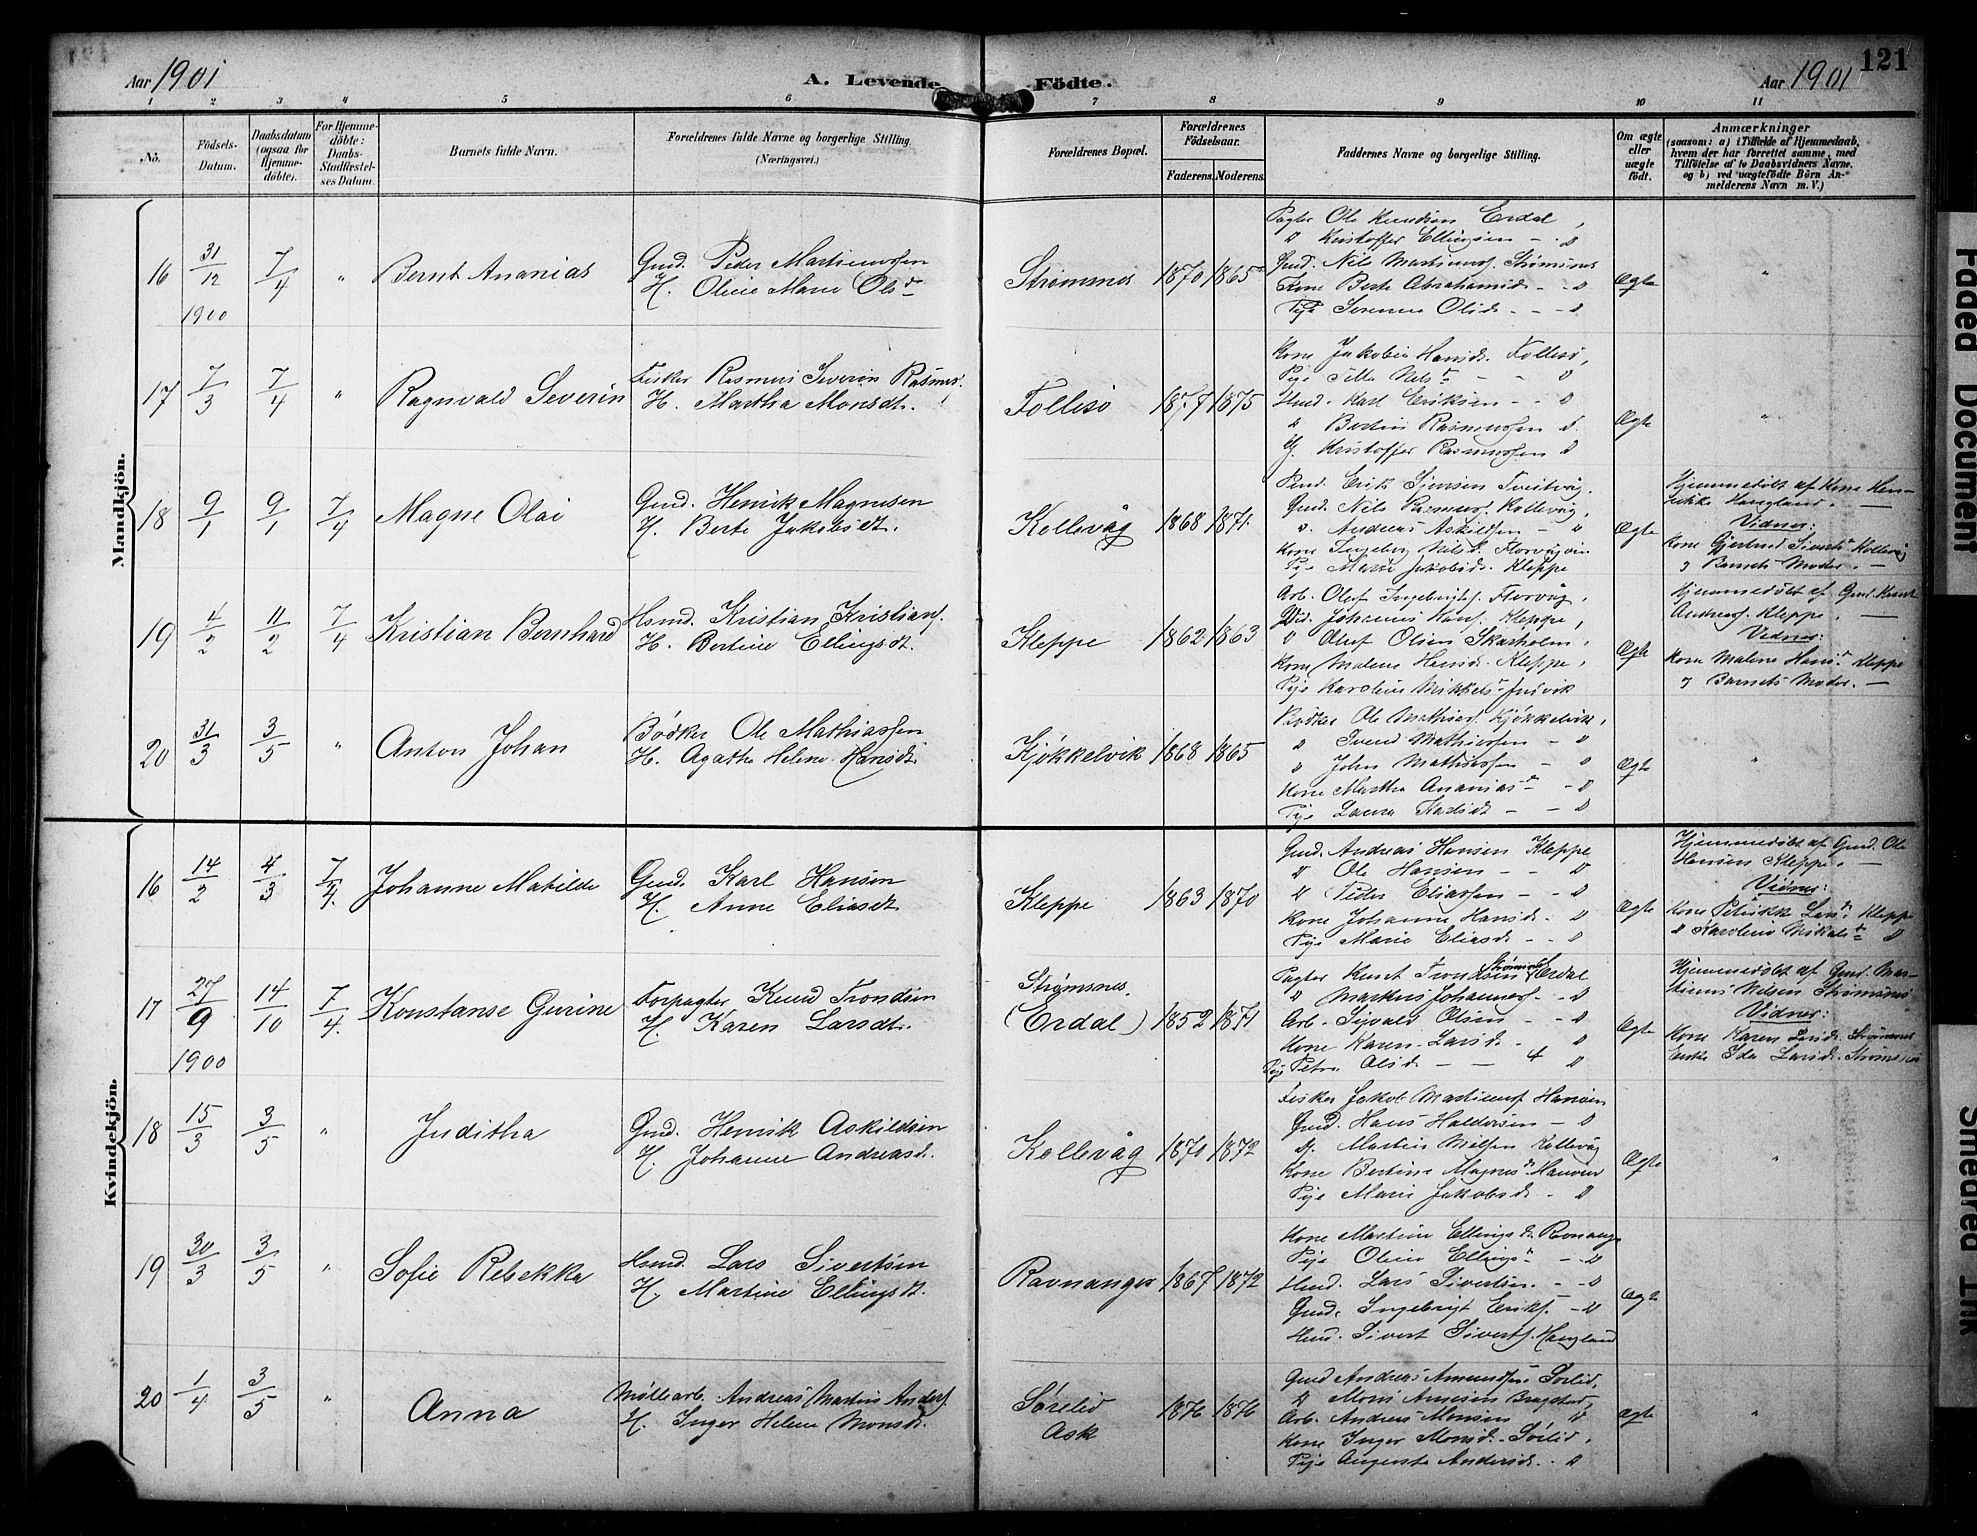 121
Aar 1901
A. Levende Födte.
Aar 1901
1 2 3 4 5 6 7 8 9 10 11
No.
Födsels-Datum.
Daabsdatum (ogsaa for Hjemmedöbte).
For Hjemmedöbte: Daabs-Stadfæstelses Datum.
Barnets fulde Navn.
Forældrenes fulde Navne og borgerlige Stilling. (Næringsvei.)
Forældrenes Bopæl.
Forældrenes Födselsaar.
Faderens. Moderens.
Faddernes Navne og borgerlige Stilling.
Om ægte eller uægte födt.
Anmærkninger
(saasom: a) i Tilfælde af Hjemmedaab, hvem der har forrettet samme, med Tilföielse af to Daabsvidners Navne, og b) ved uægtefödte Börn Anmelderens Navn m. V.)
Mandkjön.
16 31/12 1900 7/4 " Bernt Ananias
Gmd. Peder Martinussen
H. Oline Marie Olsd.
Strømsnes 1870 1865
Pagter Ole Knudsen Erdal,
" Kristoffer Ellingsen - "
Gmd. Nils Martinuss. Strømsnes
Kone Berte Abrahamsd. - "
Pige Serine Olsd. - - "
Ægte "
17 7/3 7/4 " Ragnvald Severin
Fisker Rasmus Severin Rasmus.
H. Martha Monsdt.
Follesø 1877 1875
Kone Jakobie Hansd. Follesø,
Pige Nels. - - "
Karl Eriksen - - "
" Bertin Rasmussen "
Kristoffer Rasmussen "
Ægte "
18 9/1 9/1 7/4 Magne Olai
Gmd. Henrik Magnesen
H. Berte Jakobsdt.
Kollevåg 1868 1871
Erik Simsen Tveitvåg,
Gmd. Nils Rasmus. Kollevåg,
" Andreas Askildsen - "
Kone Ingeborg Nilsd. Florvågvin
Pige Marie Jakobsd. Kleppe
Ægte
Hjemmedøbt af Kone Henrikke Haugland.
Vidner:
Kone Gjertrud Siverts. Kollevåg
og Barnets Moder.
19 4/2 11/2 7/4 Kristian Bernhard
Hsmd. Kristian Kristians.
H. Bertine Ellingsdt.
Kleppe 1862 1863
Arb. Olaf Ingebrigts. Florvåg,
Johannes Hans. Kleppe,
" Oluf Olsen Skarholm,
Kone Malene Hansd. Kleppe,
Pige Karoline Mikkels. Juvik
Ægte
Hjemmedøbt af Gmd. Knut Andreas. Kleppe.
Vidner:
Kone Malene Hans. Kleppe
og Barnets Moder.
20 31/3 3/5 " Anton Johan
Bødker Ole Mathiassen
H. Agathe Helene Hansdt.
Kjøkkelvik 1868 1865
Bødker Ole Mathias. Kjøkkelvik,
" Svend Mathiassen - "
" John Mathiassen - "
Kone Martha Ananias. - "
Pige Laura - - "
Ægte "
Kvindekjön.
16 14/2 4/3 7/4. Johanne Matilde
Gmd. Karl Hansen
H. Anne Eliasdt.
Kleppe 1863 1870
Gmd. Andreas Hansen Kleppe
" Ole Hansen - - "
" Peder Eliassen - "
Kone Johanne Hansd. - "
Pige Marie Eliasd. - - "
Ægte
Hjemmedøbt af Gmd. Ole Hansen Kleppe.
Vidner:
Kone Petrikke Lars. Kleppe
" Karoline Mikals. "
17 27/9 1900 14/10 7/4. Konstanse Gurine
Forpagter Knud Trondsen
H. Karen Larsdt.
Strømsnes.
(Erdal) 1852 1871
Pagter Knut Trondsen Strømsnes Erdal
" Markus Johannes. - "
Arb. Sjvald Olsen - - "
Kone Karen Larsd. - "
Pige Petra Olsd. - - "
Ægte
Hjemmedøbt af Gmd. Martinus Nilsen Strømsnes
Vidner:
Kone Karen Larsd. Strømsnes
Enke Ida Larsd. Strømsnes
18 15/3 3/5 " Juditha
Gmd. Henrik Askildsen
H. Johanne Andreasd.
Kollevåg 1870 1872
Fisker Jakob Martinus. Hanøen
Gmd. Hans Haldorsen - "
Martin Nilsen Kollevåg
Kone Bertine Magnes. Hanøen
Pige Marie Jakobsd. - "
Ægte "
19 30/3 3/5 " Sofie Rebekka
Hsmd. Lars Sivertsen
H. Martine Ellingsdt.
Ravnanger 1867 1872
Kone Martine Ellingsd. Ravnanger
Pige Oline Ellings. - "
Hsmd. Lars Sivertsen - - "
Gmd. Ingebrigt Eriks. - "
Hsmd. Sivert Siverts. Haugland
Ægte
20 1/4 3/5 " Anna
Møllearb. Andreas Martin Anders.
H. Inger Helene Monsd.
Sørelid
Ask 1876 1876
Gmd Andreas Amundsen Sørlid,
" Mons
Arb. Andreas Monsen "
Kone Inger Monsd. Sørlid,
Pige Auguste Andersd. "
Ægte "
Faded Document
Smeared Ink